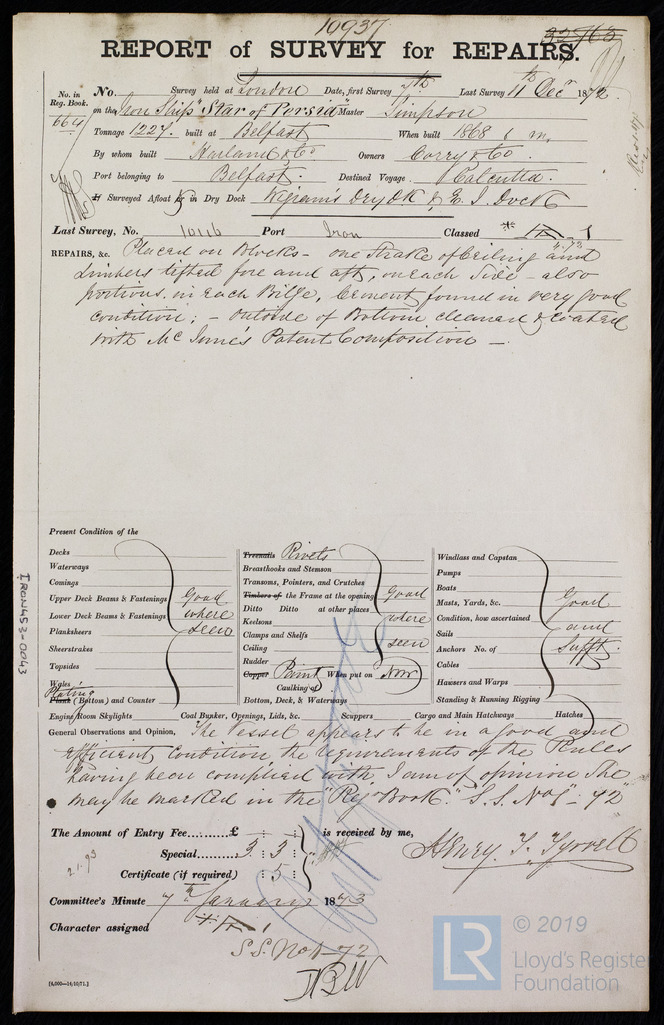 10937
REPORT of SURVEY for REPAIRS.
No. in Reg. Book. 664
No. Survey held at London Date, first Survey 7th Last Survey 11th Decr 1872.
on the Iron Ship "Star of Persia" Master Simpson
Tonnage 1227. built at Belfast When built 1868 m.
By whom built Harland & Co Owners Corry & Co.
Port belonging to Belfast. Destined Voyage Calcutta.
If Surveyed Afloat or in Dry Dock Wigram's Dry Dk & E. I. Dock
Last Survey, No. Port Iron Classed
REPAIRS, &c. Placed on Blocks - one strake of Ceiling and
Limbers lifted fore and aft, on each side - also
portions in each Bilge, Cement found in very good
condition; - outside of Bottom cleaned & coated
with Mc Innes Patent Composition -
Present Condition of the
Decks
Waterways
Comings
Upper Deck Beams & Fastenings Good
Lower Deck Beams & Fastenings where
Planksheers seen
Sheerstrakes
Topsides
Wales
Plating
Plank (Bottom) and Counter
Treenails Rivets
Breasthooks and Stemson
Transoms, Pointers, and Crutches
Timbers of the Frame at the opening Good
Ditto Ditto at other places where
Keelsons
Clamps and Shelfs seen
Ceiling
Rudder
Copper Paint When put on Now
Caulking of
Bottom, Deck, & Waterways
Windlass and Capstan
Pumps
Boats
Masts, Yards, &c. Good
Condition, how ascertained and
Sails
Anchors No. of Sufft.
Cables
Hawsers and Warps
Standing & Running Rigging
Engine Room Skylights Coal Bunker, Openings, Lids, &c. Scuppers Cargo and Main Hatchways Hatches
General Observations and Opinion, The Vessel appears to be in a good and
efficient condition the requirements of the Rules
having been complied with, I am of opinion She
may be marked in the "Reg Book." S.S. No 1 - 72"
The Amount of Entry Fee...... £ : : is received by me,
Special......... 3 : 3 :
Certificate (if required) : 5 :
Henry T. Tyrrell
Committee's Minute 7th January 1873
Character assigned
S.S. No 1 - 72
[6,000—14/10/71.]
IRON453-0043
LR
© 2019
Lloyd's Register
Foundation